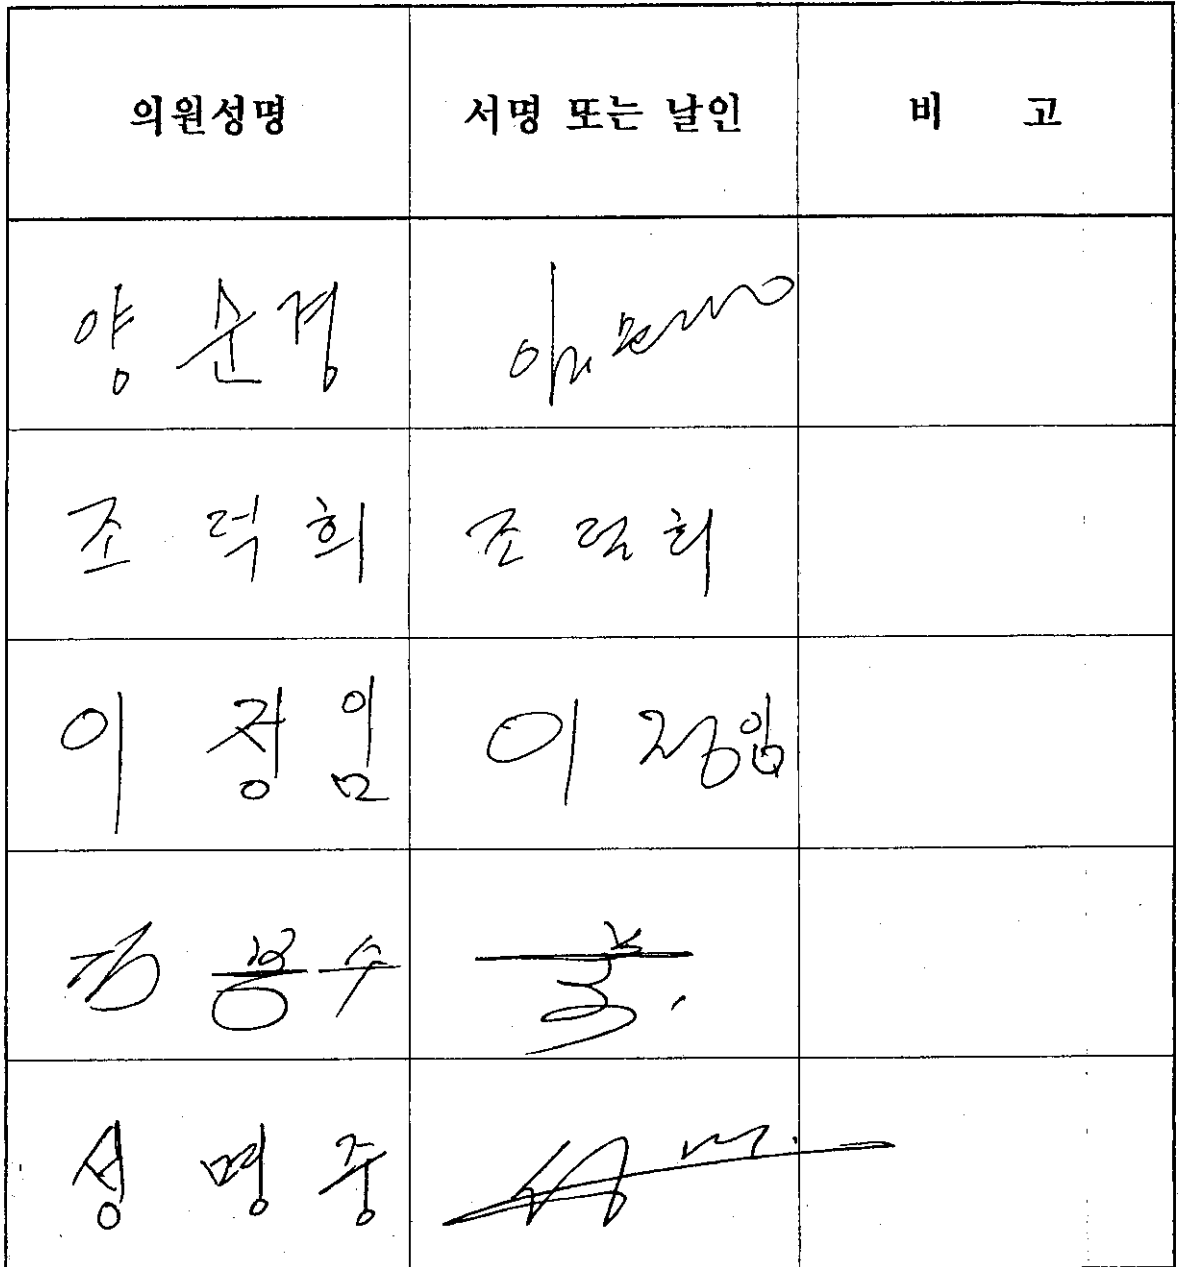 의원성명 서명 또는 날인 비 고
양 순 경
조 덕 희 조 덕 희
이 정 임 이 정임
봉 수
성 명 중